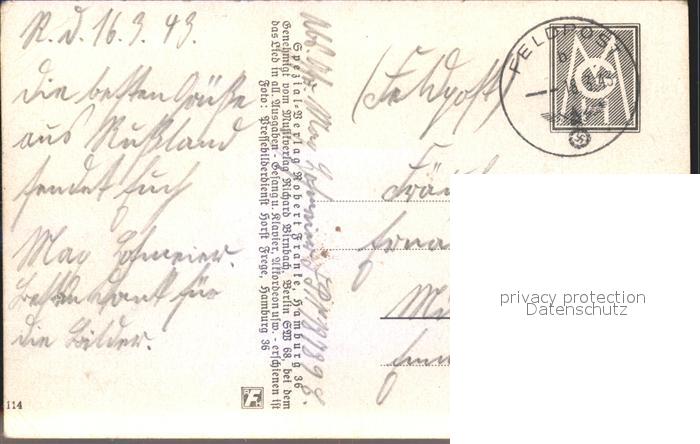 R. d. 16. 3. 43.
Die besten Grüße
aus Rußland
sendet Euch
Max Lohmeier.
Besten Dank für
die Bilder.
114
Spezial-Verlag Robert Franke, Hamburg 36
Genehmigt vom Musikverlag Richard Birnbach, Berlin SW 68, bei dem
das Lied in all. Ausgaben - Gesang u. Klavier, Akkordeon usw. - erschienen ist
Foto: Pressebilderdienst Horst Frege, Hamburg 36
F.
Abs. Max
(Feldpost)
FELDPOST
b
privacy protection
Datenschutz